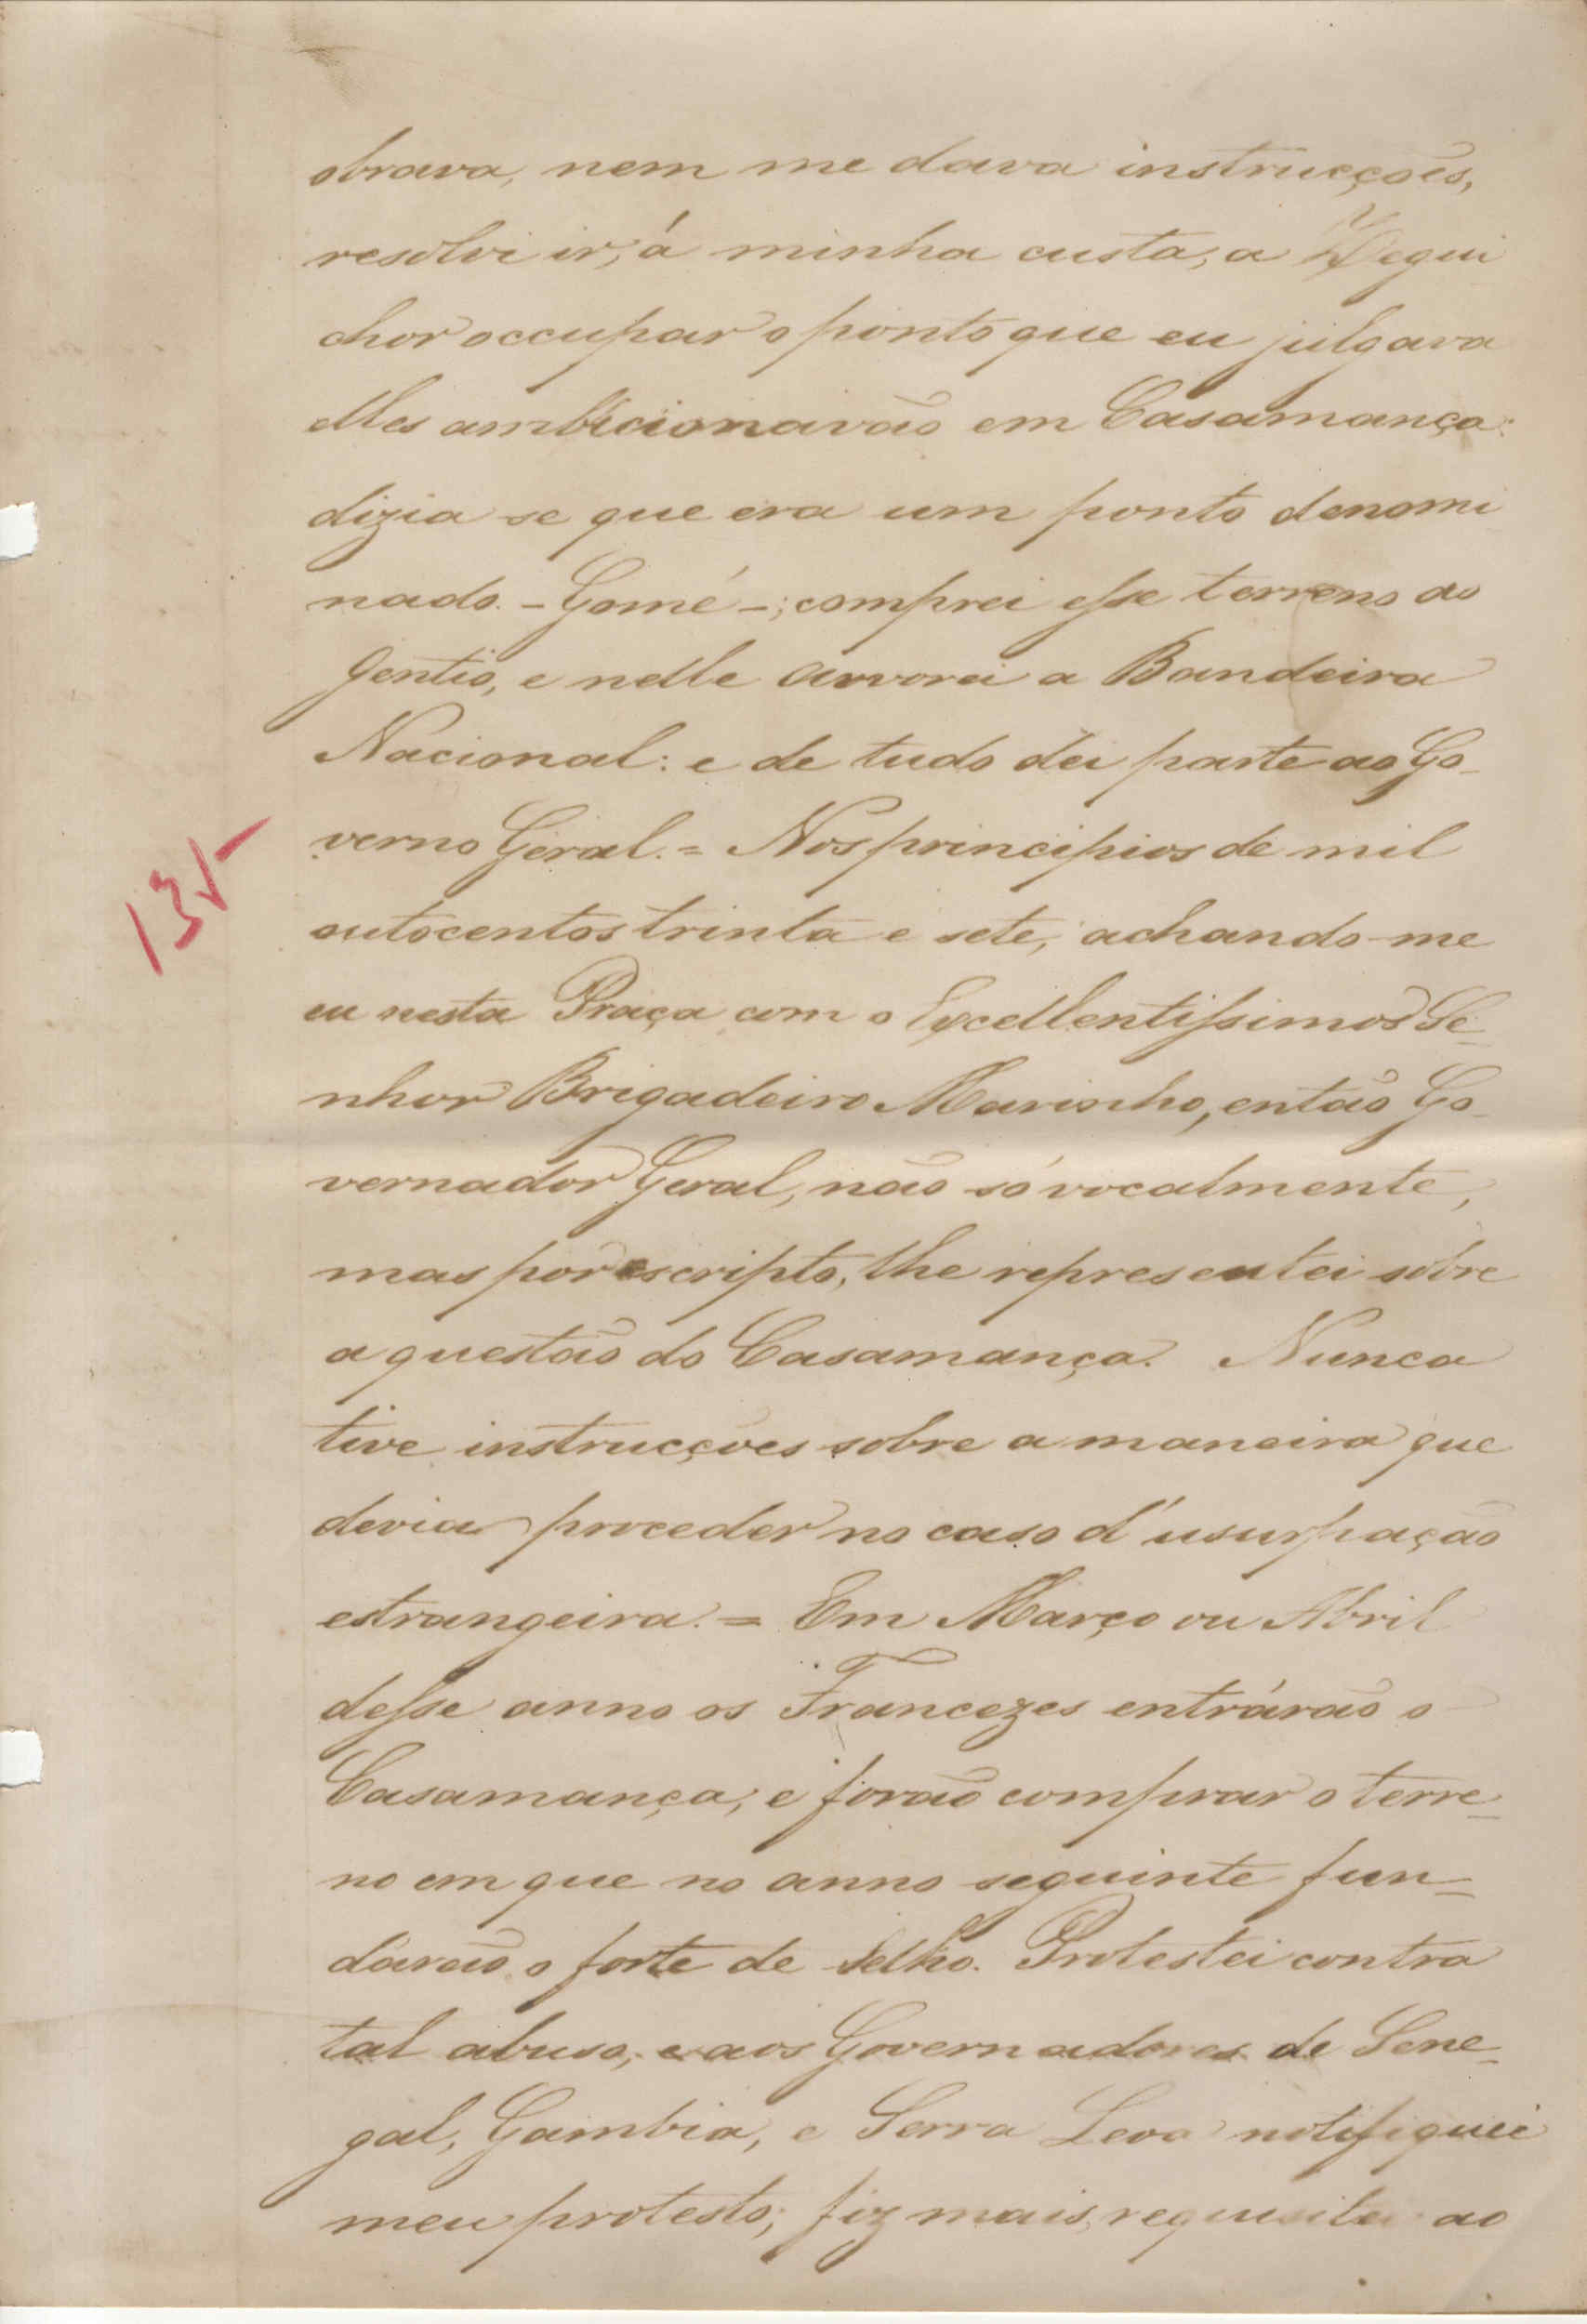 obrava, nem me dava instrucções,
resolvi ir, á minha custa, a Zegui
chor occupar o ponto que eu julgava
elles ambicionavão em Casamança:
dizia se que era um ponto denomi
nado. - Gomé -; comprei esse terreno ao
Gentio, e nelle arvorei a Bandeira
Nacional: e de tudo dei parte ao Go-
verno Geral. = Nos principios de mil
outocentos trinta e sete, achando-me
135
eu nesta Praça com o Excellentissimo Se-
nhor Brigadeiro Marinho, então Go-
vernador Geral, não só vocalmente,
mas por escripto, lhe representei sobre
a questão do Casamança. Nunca
tive instrucções sobre a maneira que
devia proceder no caso d'usurpação
estrangeira. = Em Março ou Abril
desse anno os Francezes entrárão o
Casamança, e forão comprar o terre-
no em que no anno seguinte fun-
dárão o forte de Selho. Protestei contra
tal abuso, e aos Governadores de Sene-
gal, Gambia, e Serra Leoa notifiquei
meu protesto; fiz mais, requisitei ao